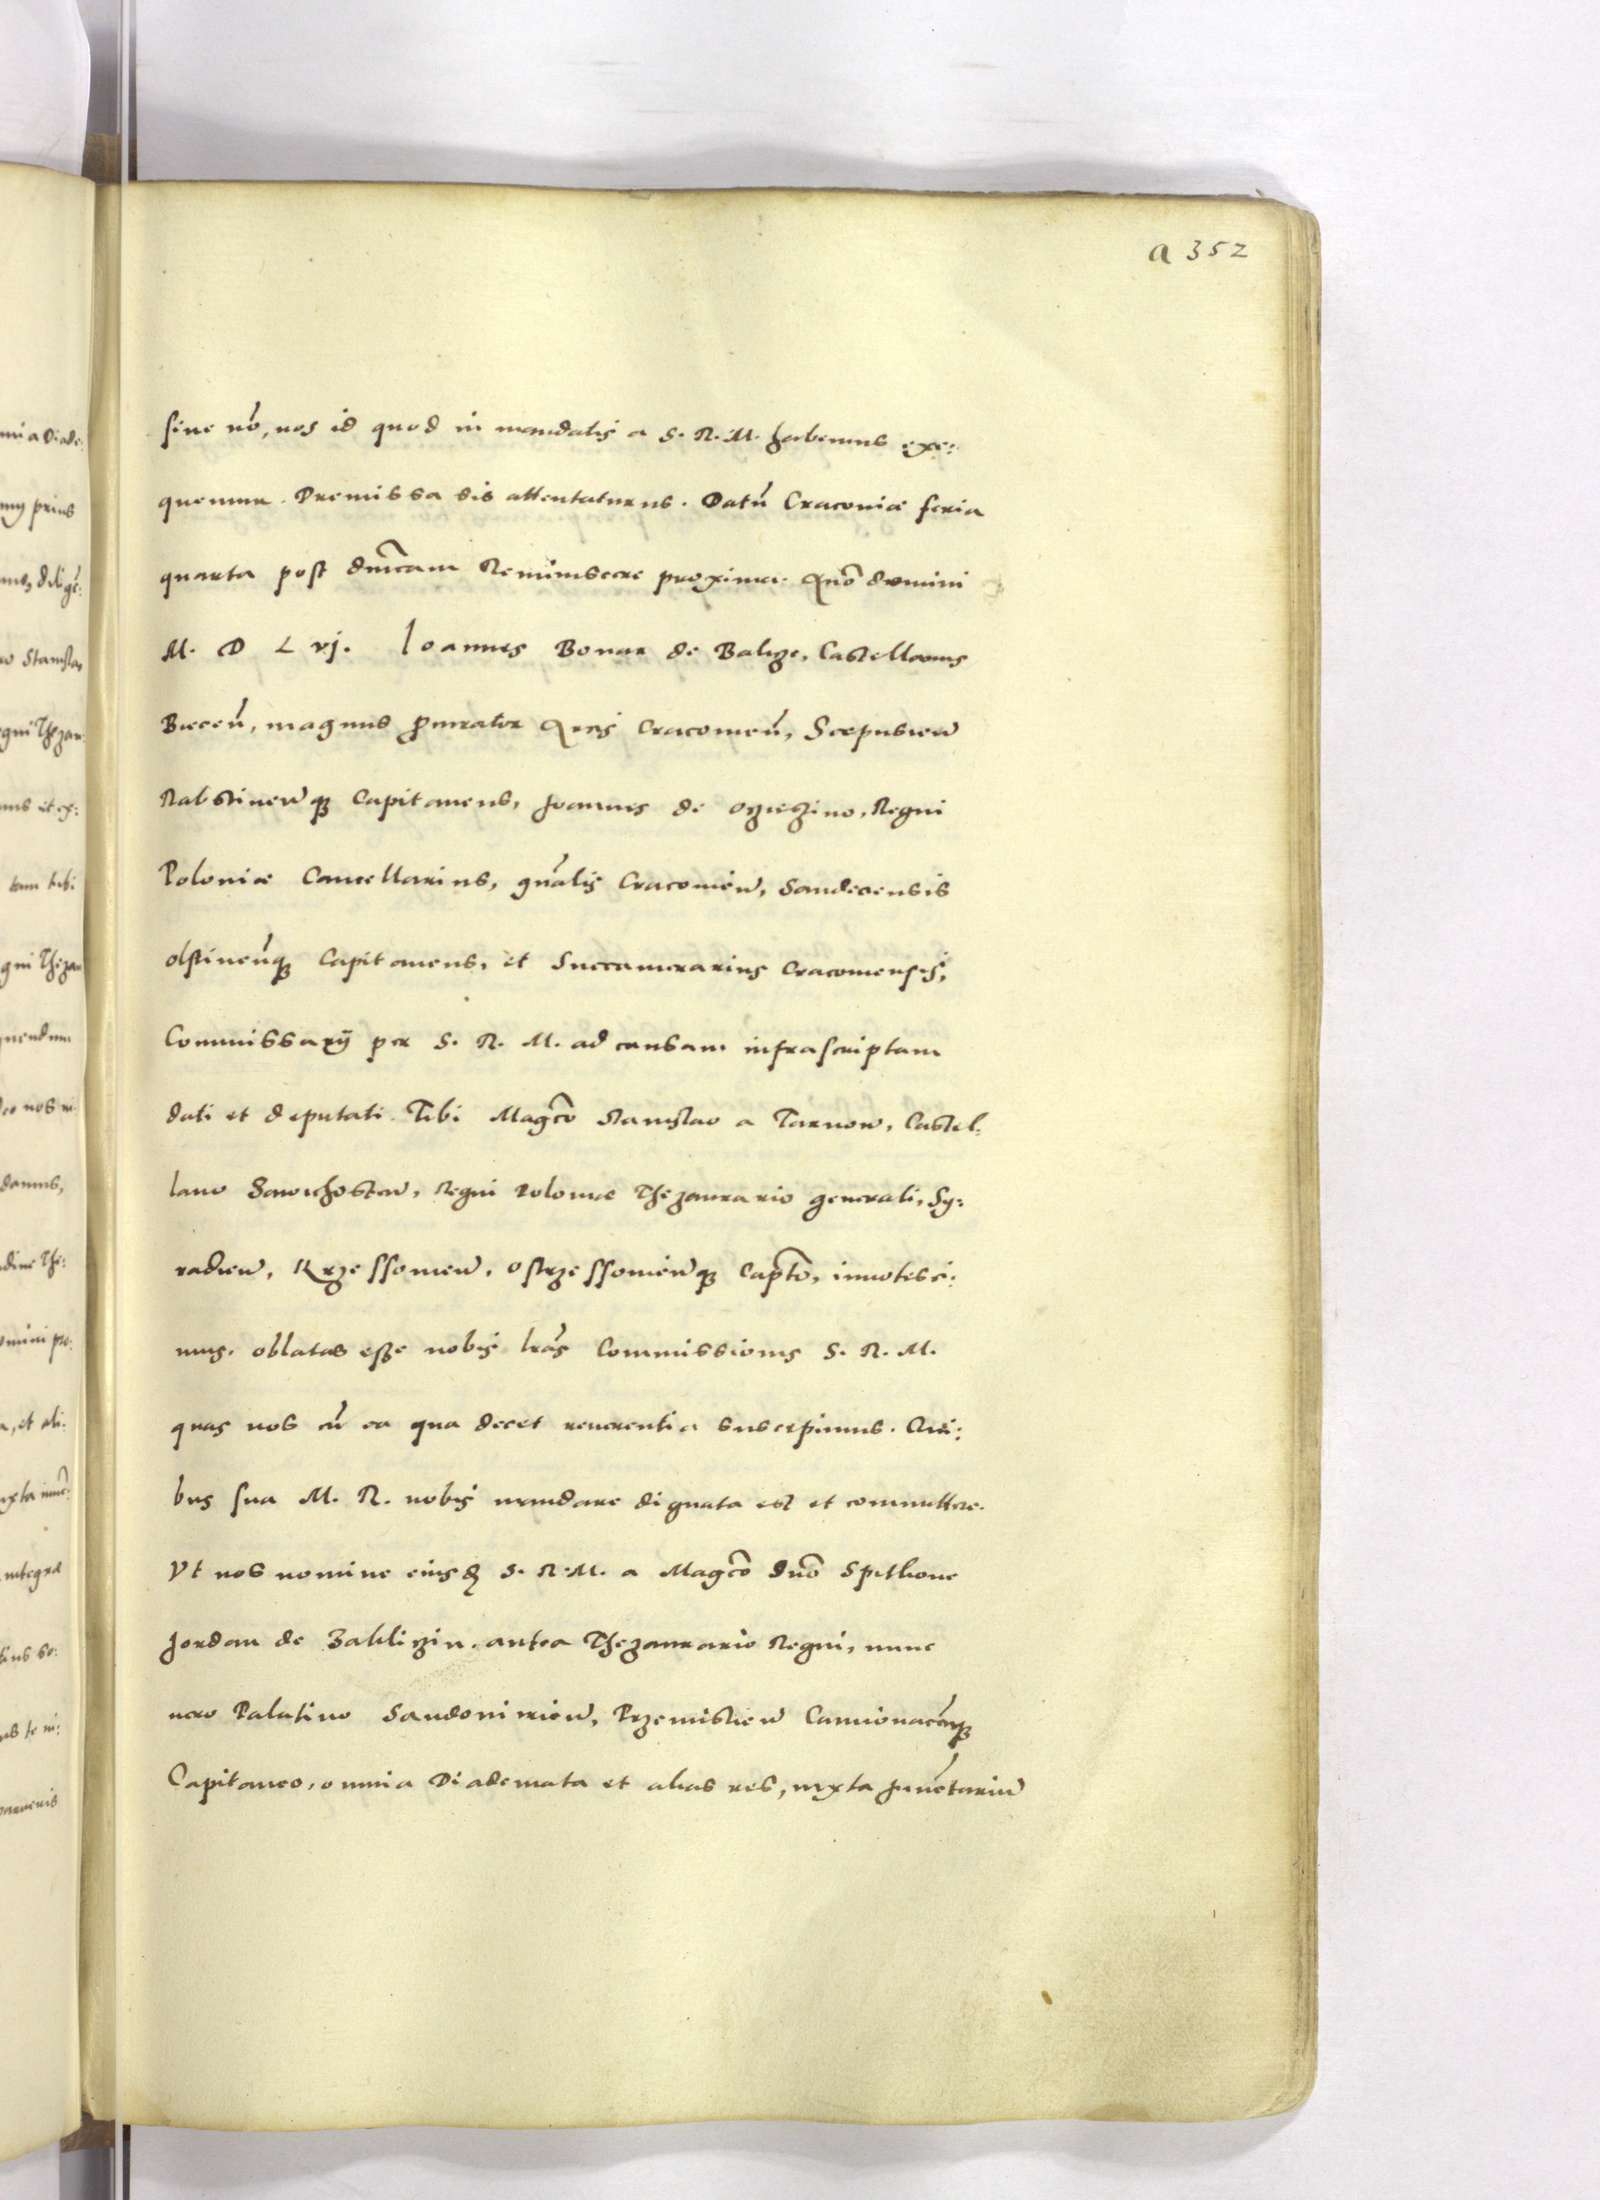 a 352
sine nō, nos id quod in mandatis a S. R. M. habemus exe:
quemur. Premissa sis attentaturus. Datū Cracoviæ feria
quarta post dnīcam Reminiscere proxima. Anō domini
M. D L vj. Ioannes Bonar de Balicze, Castellanus
Biecēn, magnus procurator Arcis Cracoviēn, Scepusien̄
Rabstinen̄que Capitaneus, Joannes de Oczieszino, Regni
Poloniæ Cancellarius, gn̄alis Cracovien̄, Sandecensis
olstinen̄que Capitaneus, et Succamerarius Cracoviensis,
Commissarij per S. R. M. ad causam infrascriptam
dati et deputati. Tibi Magcō Stanislao a Tarnow, Castel:
lano Zawichosten̄, Regni Poloniæ Thezaurario generali, Sy:
radien̄, Krzessovien̄, Ostrzessovien̄que Captō, innotesci:
mus, oblatas esse nobis lrās Commissionis S. R. M.
quas nos cū ea qua decet reverentia suscepimus. Qui:
bus sua M. R. nobis mandare dignata est et committere.
Vt nos nomine eiusdem S. R. M. a Magcō Dnō Spithone
Jordan de Zakliczin antea Thezaurario Regni, nunc
vero Palatino Sandomirien̄, Przemislien̄ Camionacēnque
Capitaneo, omnia Diademata et alias res, iuxta Inuētariū
mia Diade:
prius
dilige:
Stanisla
gni Thezau
et ex:
tam tibi
gni Thezau
quendum
nos ni
damus,
The:
omini pro:
, et ali:
uxta
integra
se:
te ni: